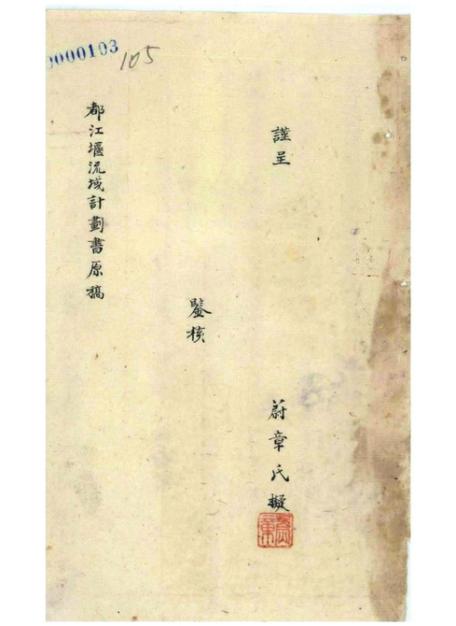 0000103
105
謹呈
蔚章氏擬
鑒核
都江堰流域計劃書原稿